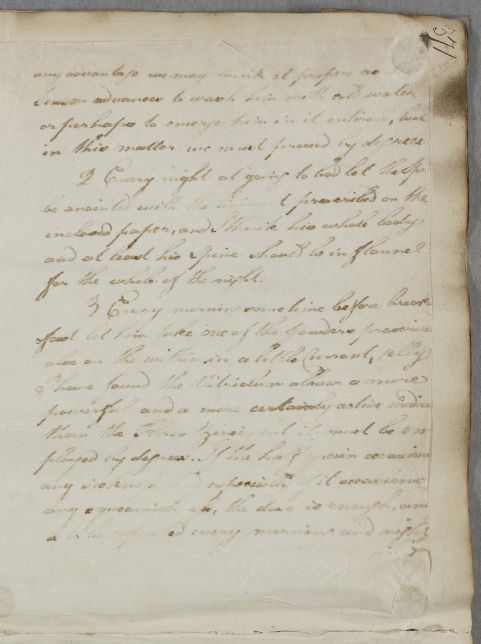 any advantage we may think it proper as
Season advances to wash him with cold water
or perhaps to emerge him in it entirely, but
in this matter we must proceed by degrees
2 Every night at going to bed let the Sp
be anointed with the prescribed on the
inclosed paper, and I think his whole body
and at least his Spine should be in flannel
for the whole of the night.
3 Every morning some time before break
fast let him take one of the powders prescribed
also on the within in a little Currant Jelly
I have found the Vitriolum album a more
powerful and a more certainly active medicine
than the Flores Zinci, but it must be em
ployed by degrees. If the half grain occasions
any sickness especially if it occasions
any squeamishness, the dose is enough, and
is to be repeated every morning and night